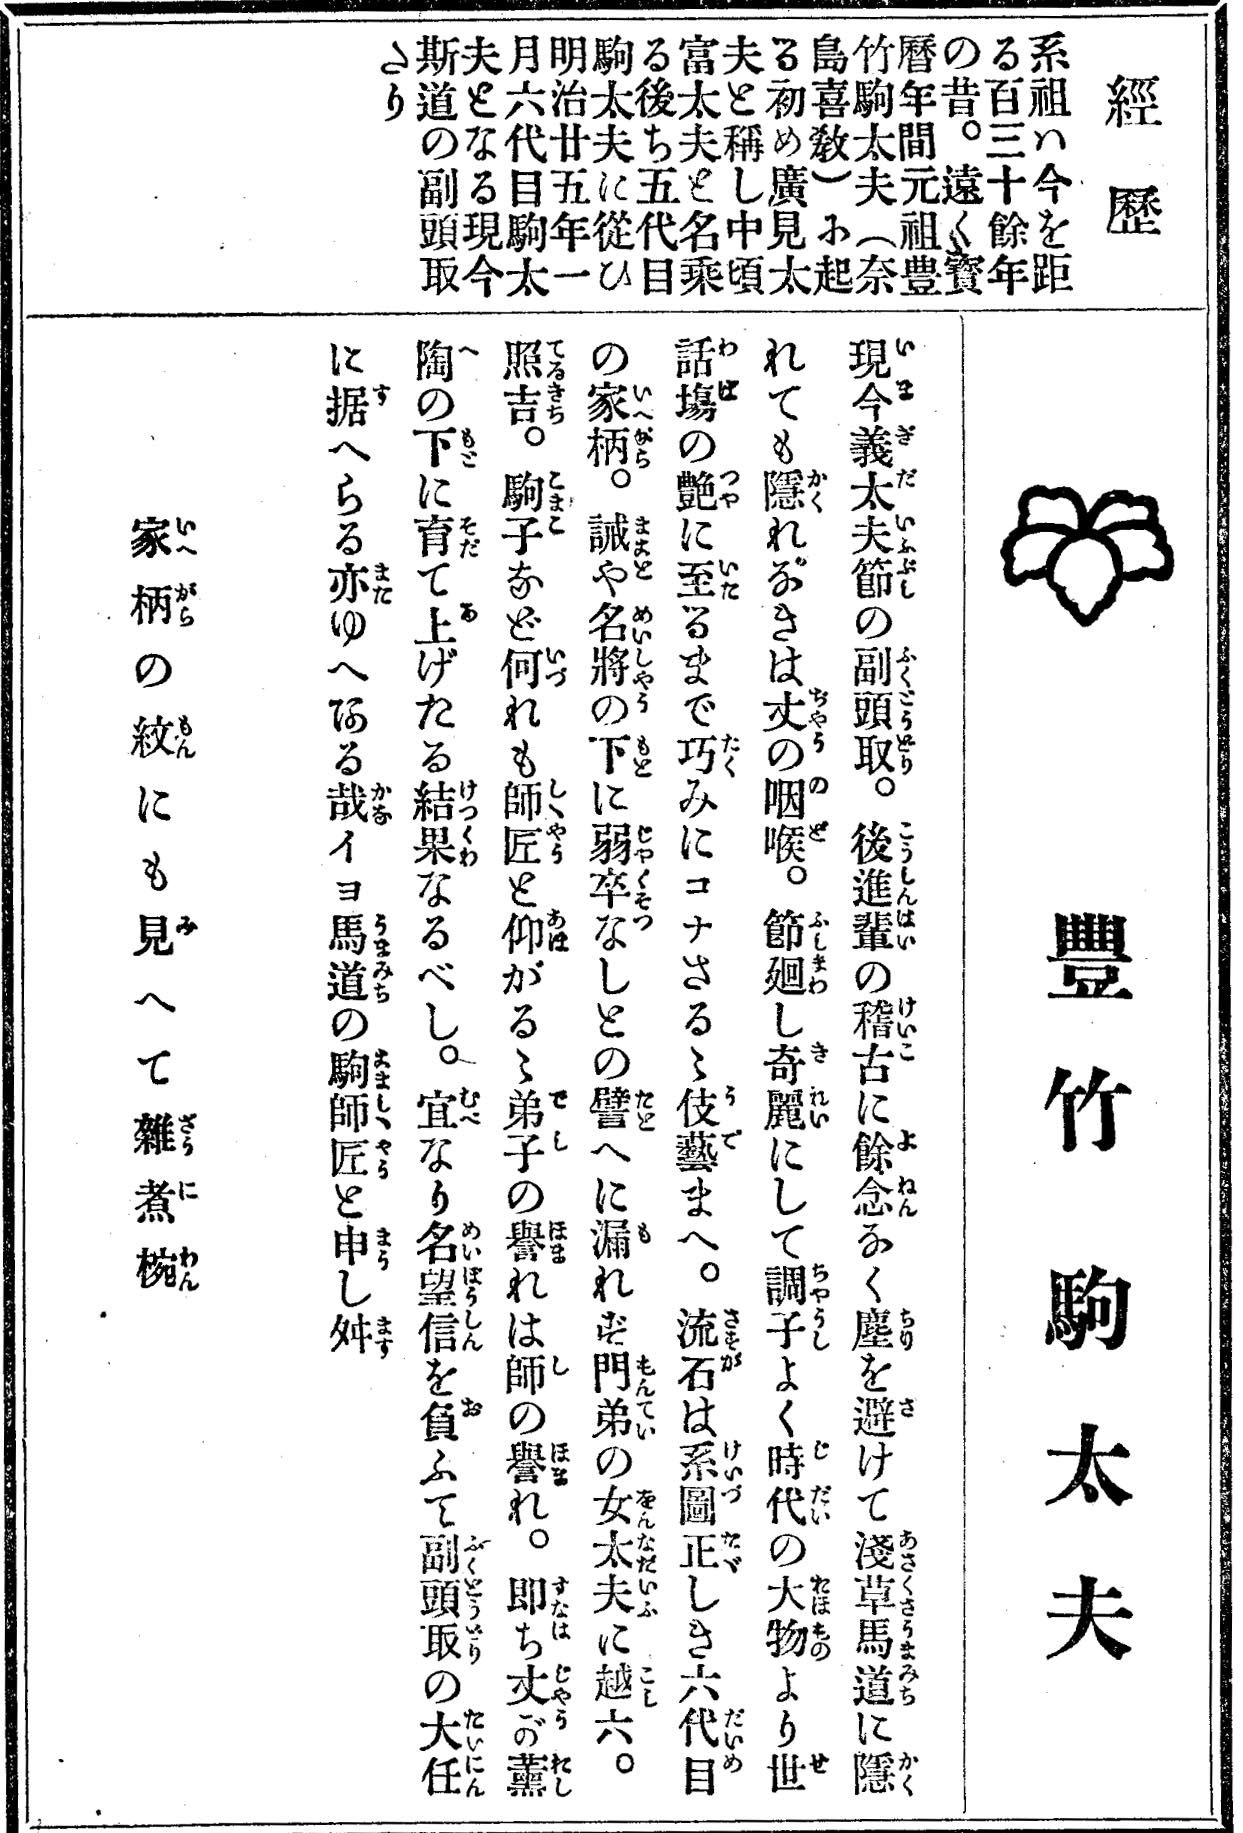 經歷
系祖ハ今を距
る百三十餘年
の昔。遠く寳
曆年間元祖豊
竹駒太夫（奈
島喜敎）に起
る初め廣見太
夫と稱し中頃
富太夫と名乘
る後ち五代目
駒太夫に從ひ
明治廿五年一
月六代目駒太
夫となる現今
斯道の副頭取
さり
豐竹駒太夫
現今義太夫節の副頭取。後進輩の稽古に餘念なく塵を避けて淺草馬道に隱
れても隱れなきは丈の咽喉。節廻し奇麗にして調子よく時代の大物より世
話塲の艶に至るまで巧みにコナさるゝ伎藝まへ。流石は系圖正しき六代目
の家柄。誠や名將の下に弱卒なしとの譬へに漏れず門弟の女太夫に越六。
照吉。駒子など何れも師匠と仰がるゝ弟子の譽れは師の譽れ。即ち丈が薰
陶の下に育て上げたる結果なるべし。宜なり名望信を負ふて副頭取の大任
に据へらる亦ゆへある哉イヨ馬道の駒師匠と申し舛
家柄の紋にも見へて雜煮椀